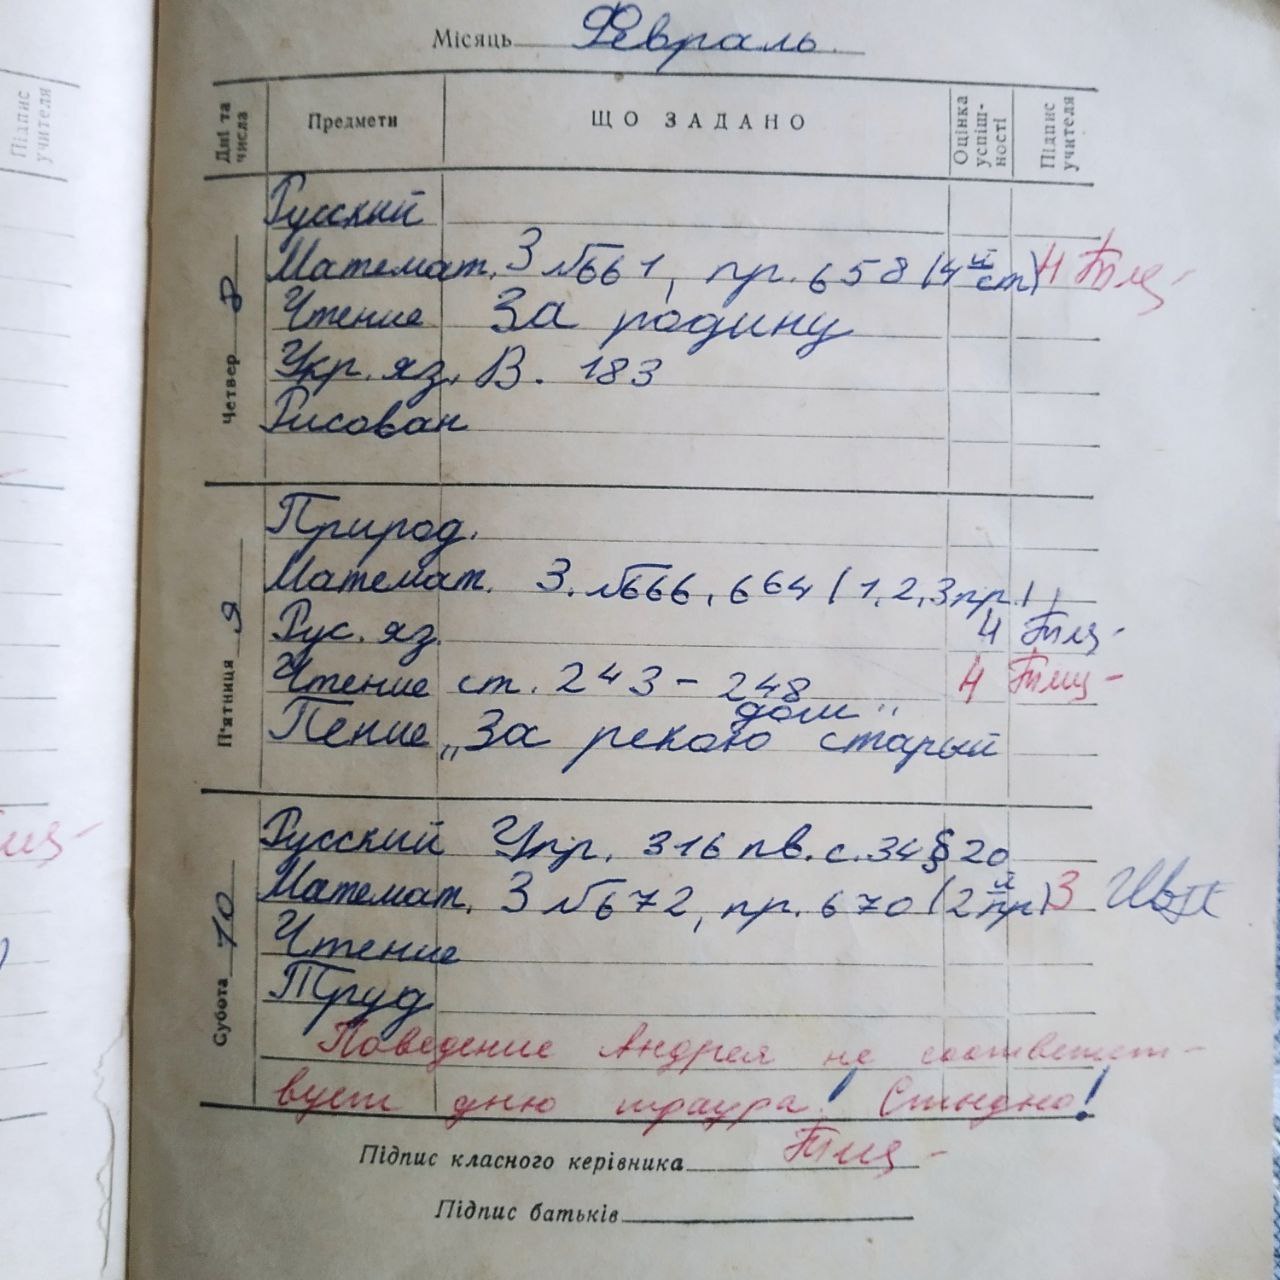 Місяць Февраль
Дні та числа Предмети ЩО ЗАДАНО Оцінка успіш-ності Підпис учителя
Підпис учителя
Четвер 8
Русский
Математ. З №661, пр. 658 (4й ст) 4
Чтение За родину
Укр. яз. В. 183
Рисован
П'ятниця 9
Природ.
Математ. З. №666, 664 (1,2,3 пр.)
Рус. яз. 4
Чтение ст. 243 - 248 4
Пение „За рекою старый дом"
Субота 10
Русский Упр. 316 пв. с. 34 § 20
Математ. З №672, пр. 670 (2й пр) 3
Чтение
Труд
Поведение Андрея не соответст-
вует дню траура! Стыдно!
Підпис класного керівника
Підпис батьків